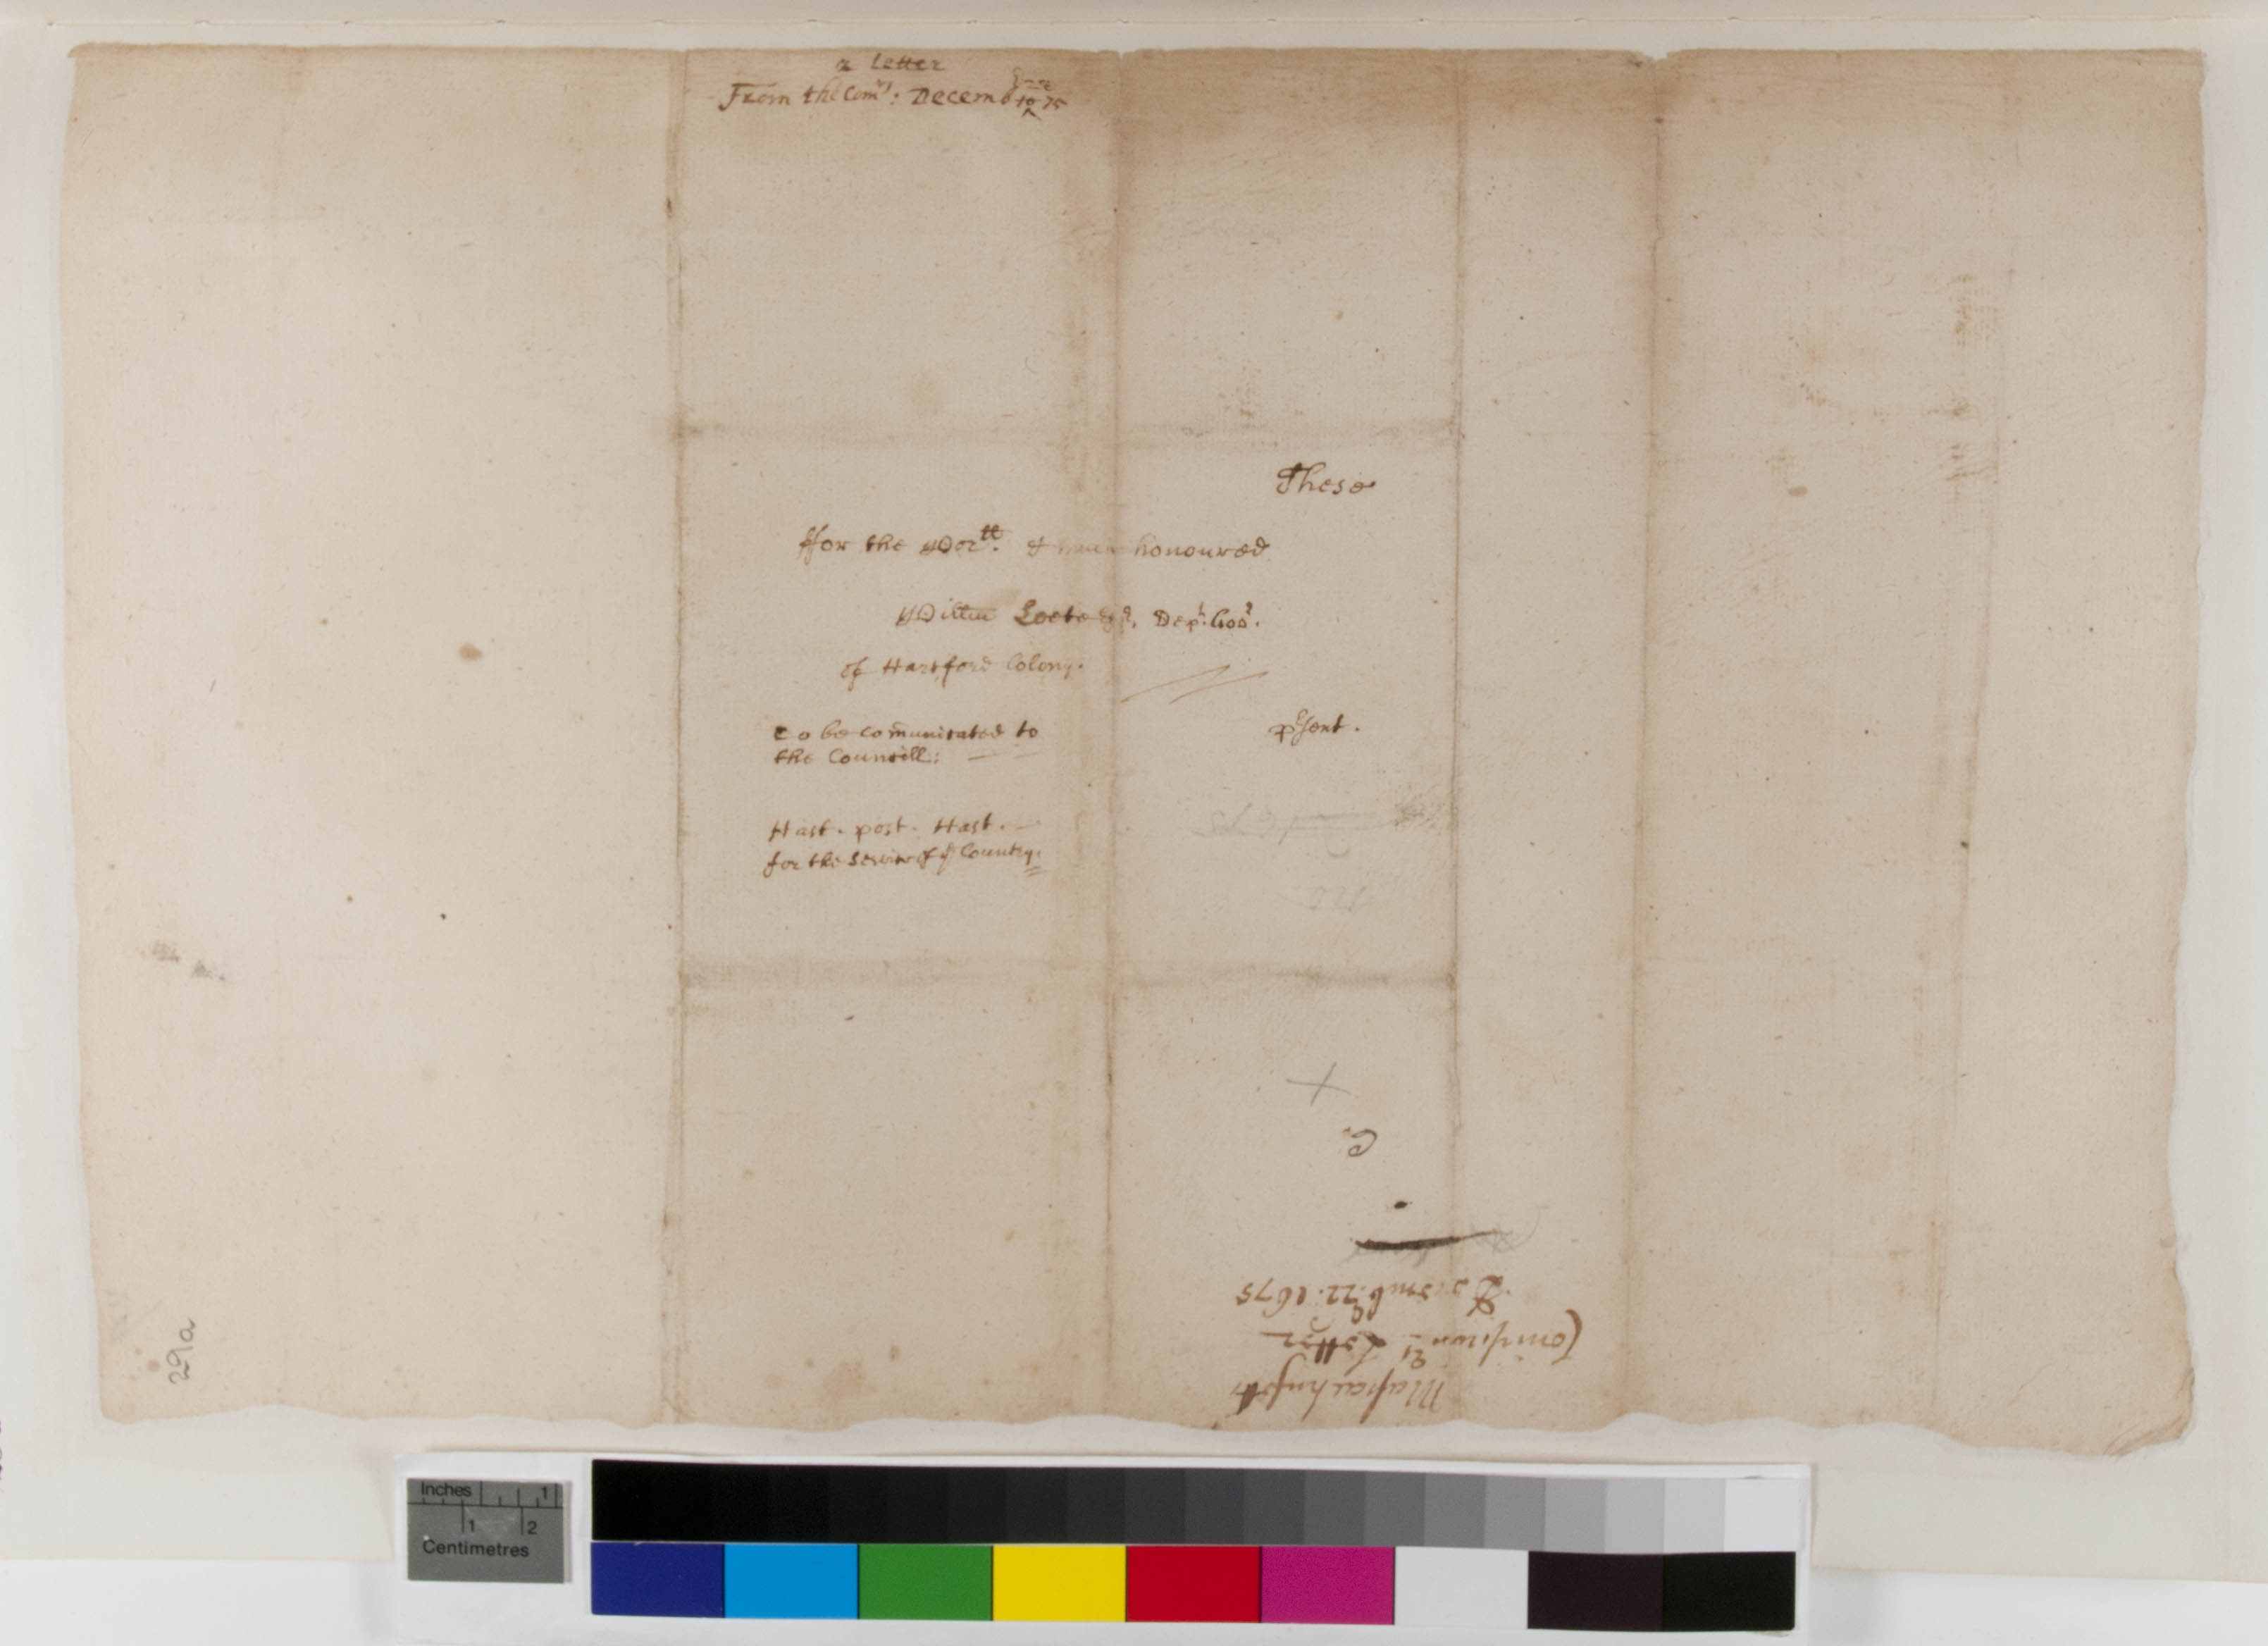 a Letter
From the Comrs: Decemb 75
These
ffor the Worll. & much honoured
Willm Leete Esqr, Dept. Govr.
of Hartford Colony.
to be comunicated to
the Councill:
present.
Hast. post. Hast.
for the Service of ye Country.
1675
Massachusets
Comission rs Letter
Decemb: 22: 1675
29a
Inches 1
1 2
Centimetres